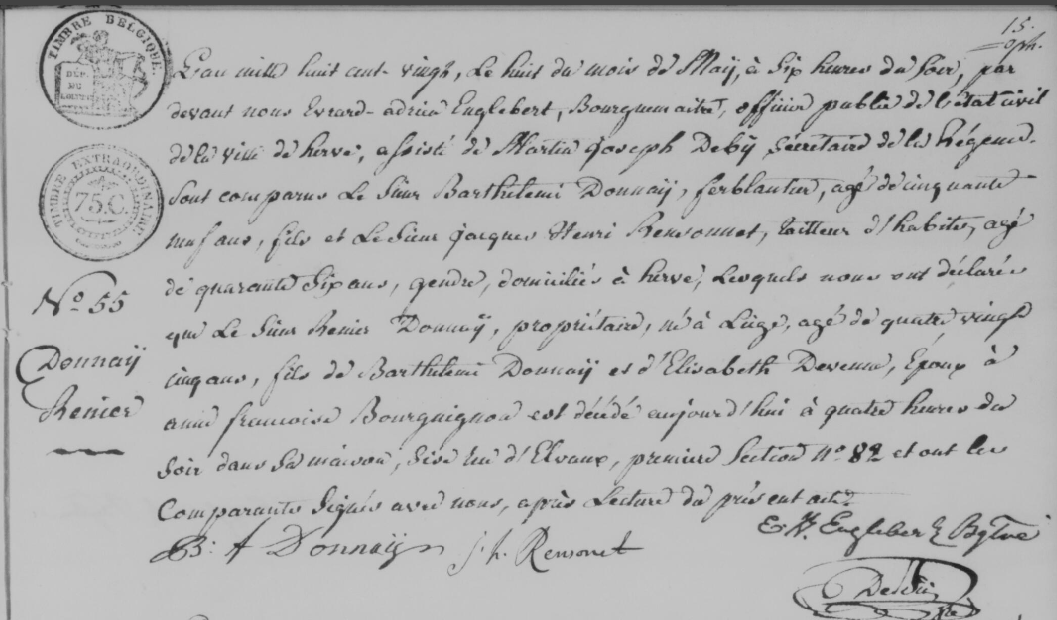 15.
oph.
TIMBRE BELGIQUE.
TIMBRE EXTRAORDINAIRE
75.C.
L'an mille huit cent vingt, Le huit du mois de Maÿ, à Six heures du Soir, par
devant nous Evrard-adrien Englebert, Bourguemaitre, officier public de l'état civil
de la ville de herve, assisté de Martin Joseph Debÿ Sécrétaire de la Régence.
Sont comparus Le Sieur Barthelemi Donnaÿ, ferblantier, agé de cinquante
neuf ans, fils et Le Sieur Jacques Henri Rensonnet, tailleur d'habits, agé
de quarante Six ans, gendre, domiciliés à herve, Lesquels nous ont déclarés
que Le Sieur Renier Donnaÿ, propriétaire, né à Liège, agé de quatre vingt
cinq ans, fils de Barthelemi Donnaÿ et d'Elisabeth Devenne, Epoux à
anne francoise Bourguignon est décédé aujourd'hui à quatre heures du
Soir dans Sa maison, Sise rue d'Elvaux, première Section N° 82 et ont les
Comparants Signés avec nous, après Lecture du présent acte.
N° 55
Donnaÿ
Renier
B: A Donnaÿ
j. h. Rensonet
Englebert